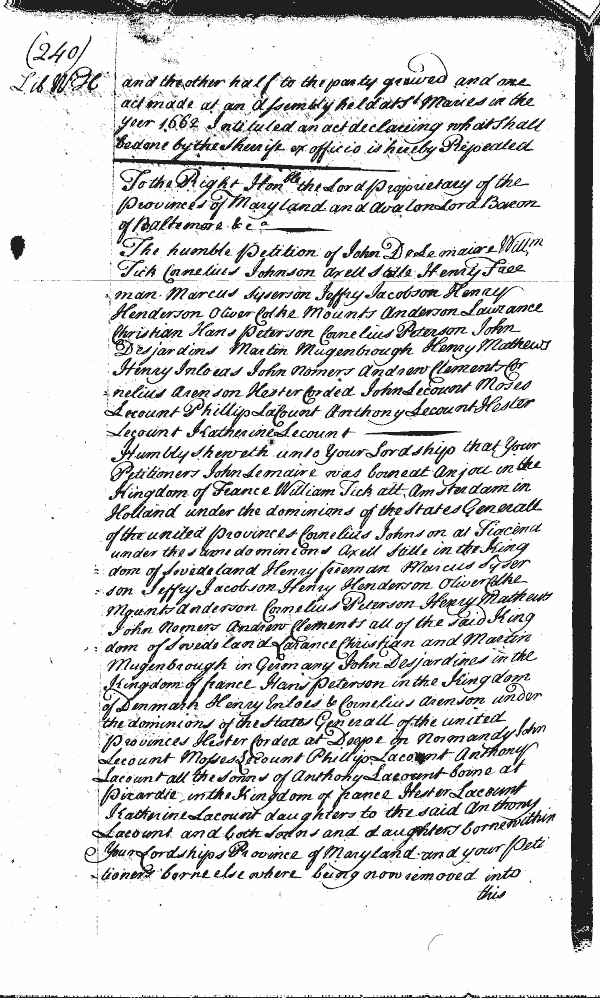 (240)
Lib WH
and the other half to the party grieved and one
act made at an Assembly held at St Maries in the
year 1662 Intituled an act declareing what Shall
be done by the Sheriffe ex officio is hereby Repealed
To the Right Honble the Lord Proprietary of the
Provinces of Maryland and Avalon Lord Baron
of Baltemore &ca
The humble Petition of John DeLemaire Willm
Tick Cornelius Johnson Axell Stille Henry Free
man Marcus Syserson Jeffry Jacobson Henry
Henderson Oliver Colke Mounts Anderson Laurance
Christian Hans Peterson Cornelius Peterson John
Desjardins Martin Mugenbrough Henry Mathews
Henry Inloeas John Nomers Andrew Clements Cor
nelius Arenson Hester Cordea John Lecount Moses
Lecount Phillip LaCount Anthony Lecount Hester
Lecount Katherine Lecount
Humbly sheweth unto Your Lordship that Your
Petitioners John Lemaire was borne at Anjou in the
Kingdom of France William Tick att Amsterdam in
Holland under the dominions of the States Generall
of the united Provinces Cornelius Johnson at
under the same dominions Axell Stille in the King
dom of Swedeland Henry freeman Marcus Syser
son Jeffry Jacobson Henry Henderson Oliver Colke
Mounts Anderson Cornelius Peterson Henry Mathews
John Nomers Andrew Clements all of the said King
dom of Swedeland Larance Christian and Martin
Mugenbrough in Germany John Desjardines in the
Kingdom of france Hans Peterson in the Kingdom
of Denmark Henry Enloes & Cornelius Arenson under
the dominions of the States Generall of the united
Provinces Hester Cordea at Deape in Normandy John
Lecount Moses Lecount Phillip Lacount Anthony
Lacount all the sonns of Anthony Lacount borne at
Picardie in the Kingdom of france Hester Lacount
Katherine Lacount daughters to the said Anthony
Lacount and both sonns and daughters borne within
Your Lordships Province of Maryland and your Peti
tioners borne else where being now removed into
this